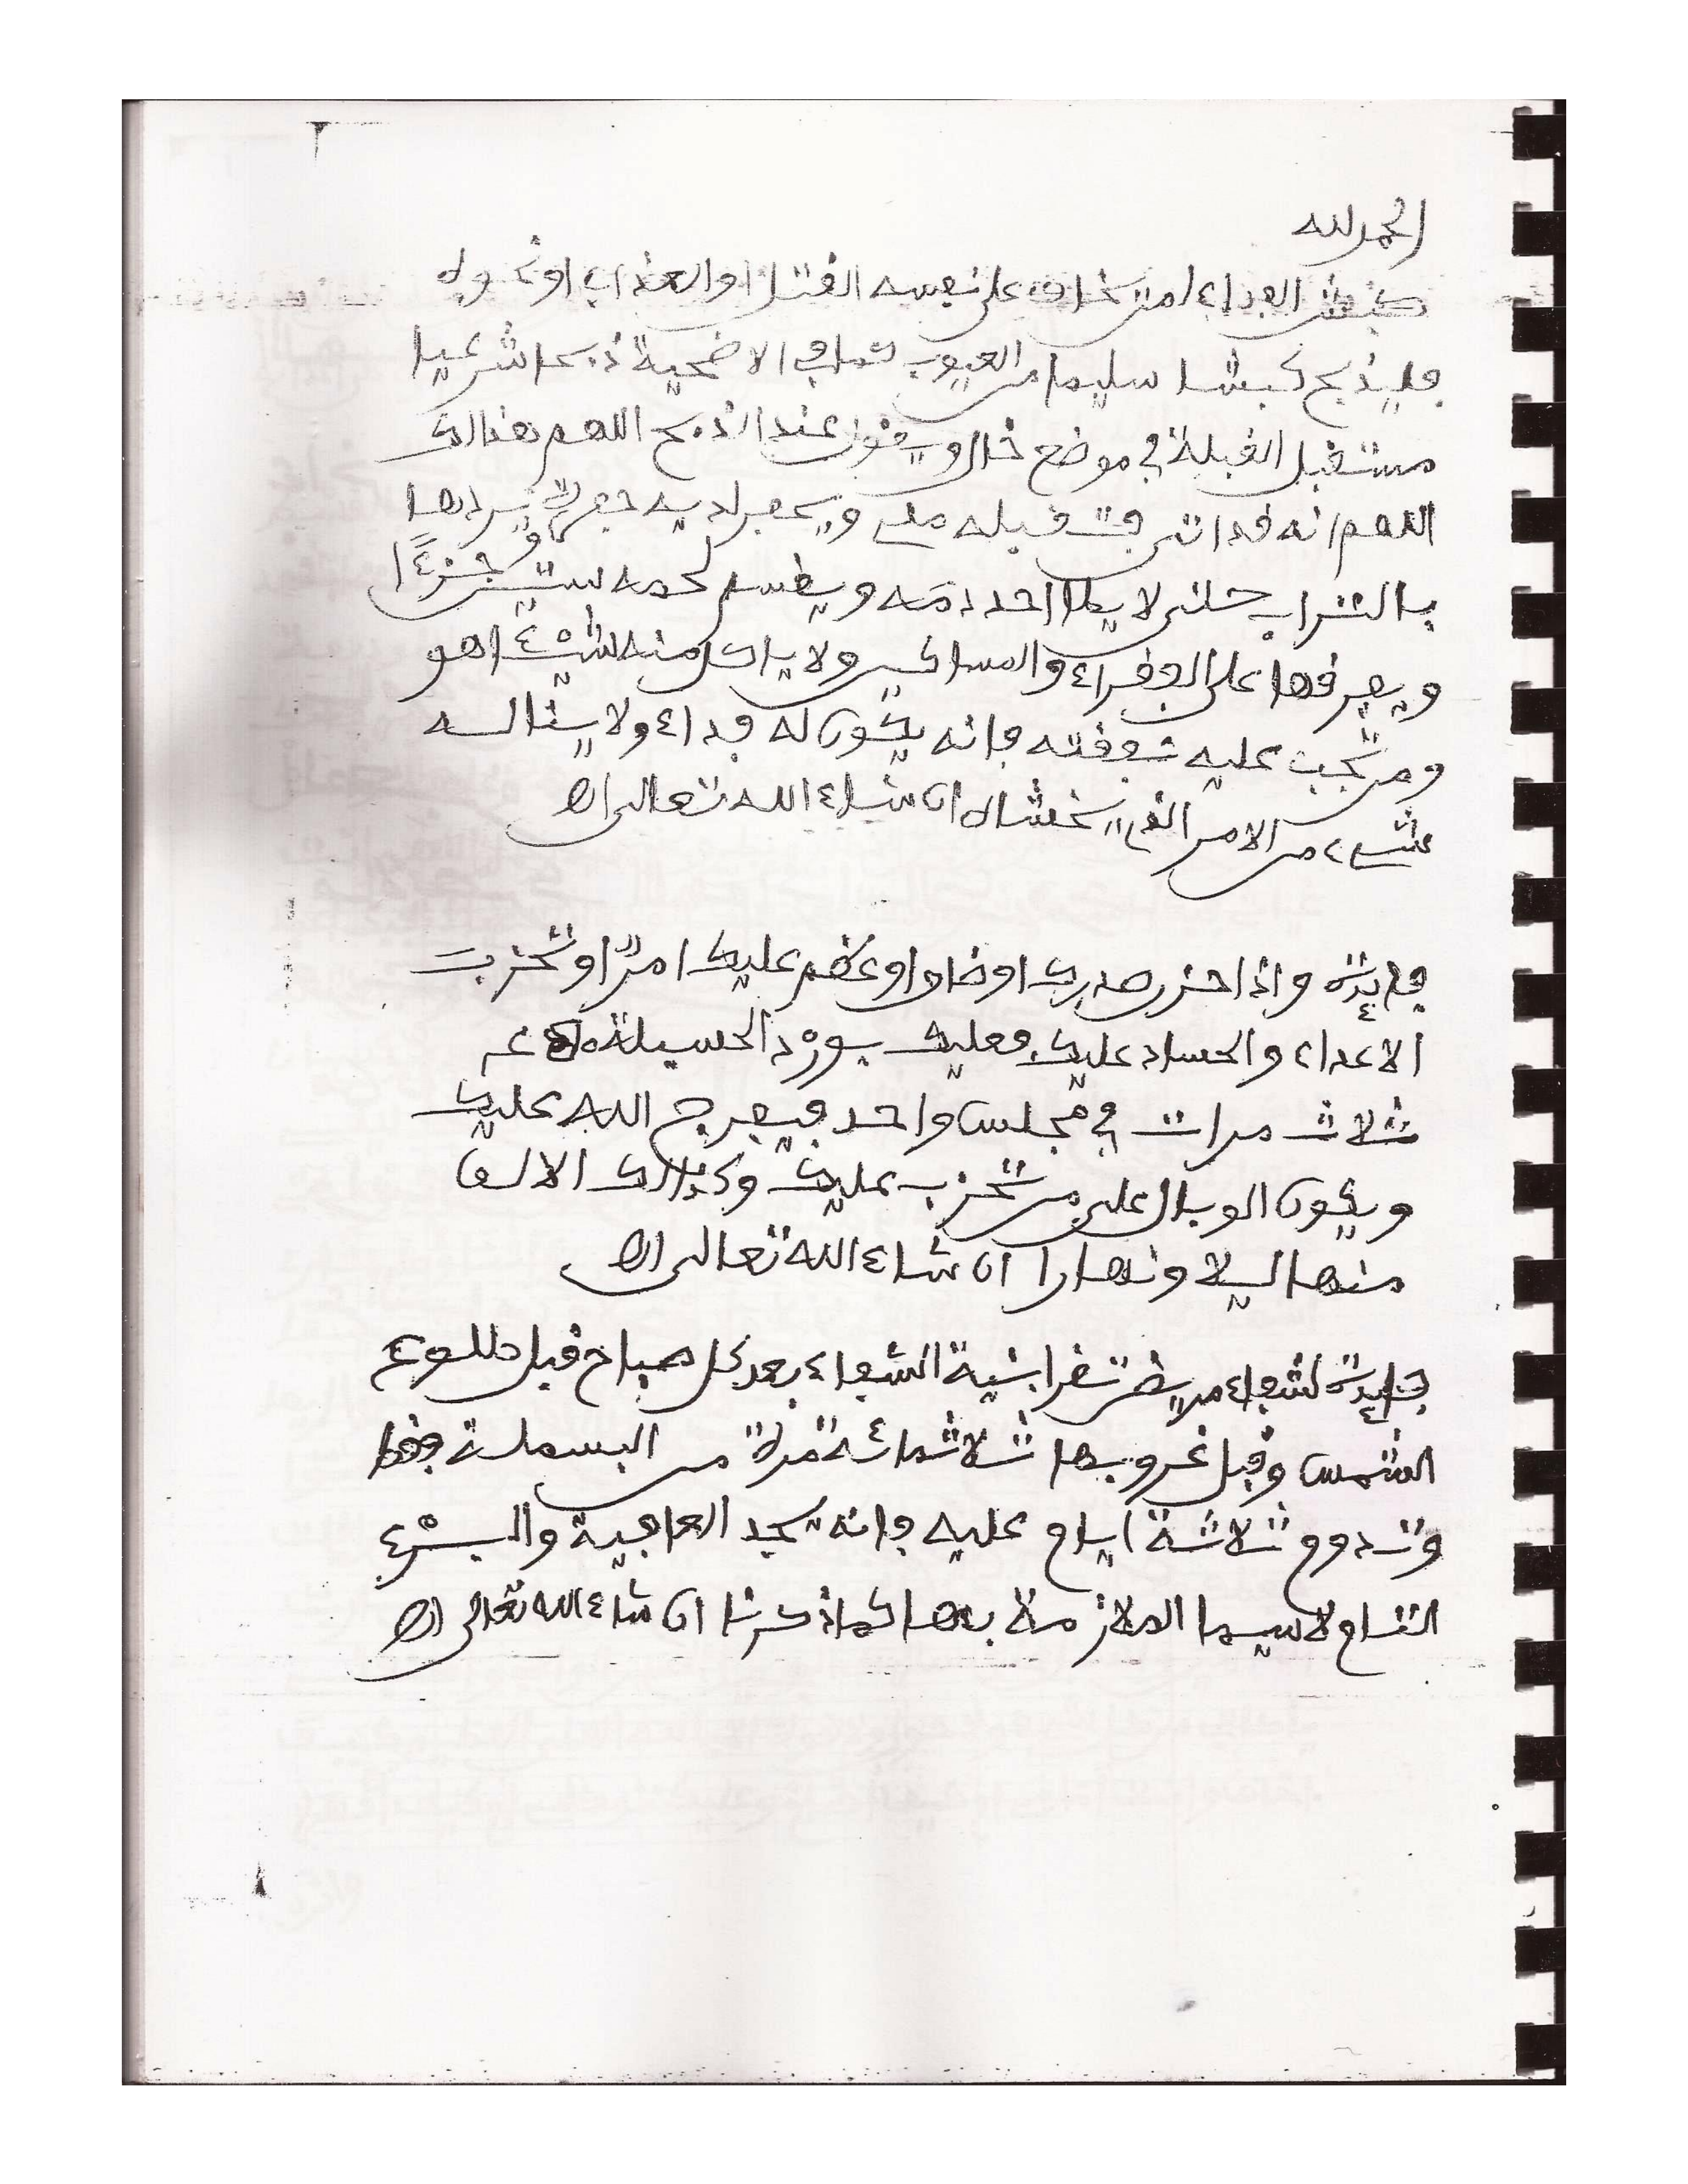 الحمد لله
كبش الفداء من يخاف على نفسه القتل او العذاب او نحوه
فليذبح كبشا سليما من العيوب كما في الاضحية ذبحا شرعيا
مستقبل القبلة في موضع خال ويقول عند الذبح اللهم هذا لك
اللهم انه فدائي فتقبله مني ويحفر لديه حفرة يردها
بالتراب حتى لا يطا احد دمه ويقسم لحمه ستين جزءًا
ويفرقها على الفقراء والمساكين ولا ياكل منه شيئا هو
ومن تجب عليه نفقته فانه يكون له فداء ولا يناله
شيء من الامر الذي يخشاه ان شاء الله تعالى اه
فايدة واذا حزن صدرك او ضاق او عظم عليك امرٌ او تحزبت
الاعداء والحساد عليك فعليك بورد الحسبلة
ثلاث مرات في مجلس واحد فيفرج الله عليك
ويكون الوبال على من تحزب عليك وكذلك الالف
منها ليلا ونهارا ان شاء الله تعالى اه
فايدة لشفاء مريض تقرا بنية الشفاء بعد كل صباح قبل طلوع
الشمس وقبل غروبها ثلاثمائة مرة من البسملة فقط
وتدوم ثلاثة ايام عليه فانه يجد العافية والبرء
التام لا سيما الملازمة بها كما ذكرنا ان شاء الله تعالى اه